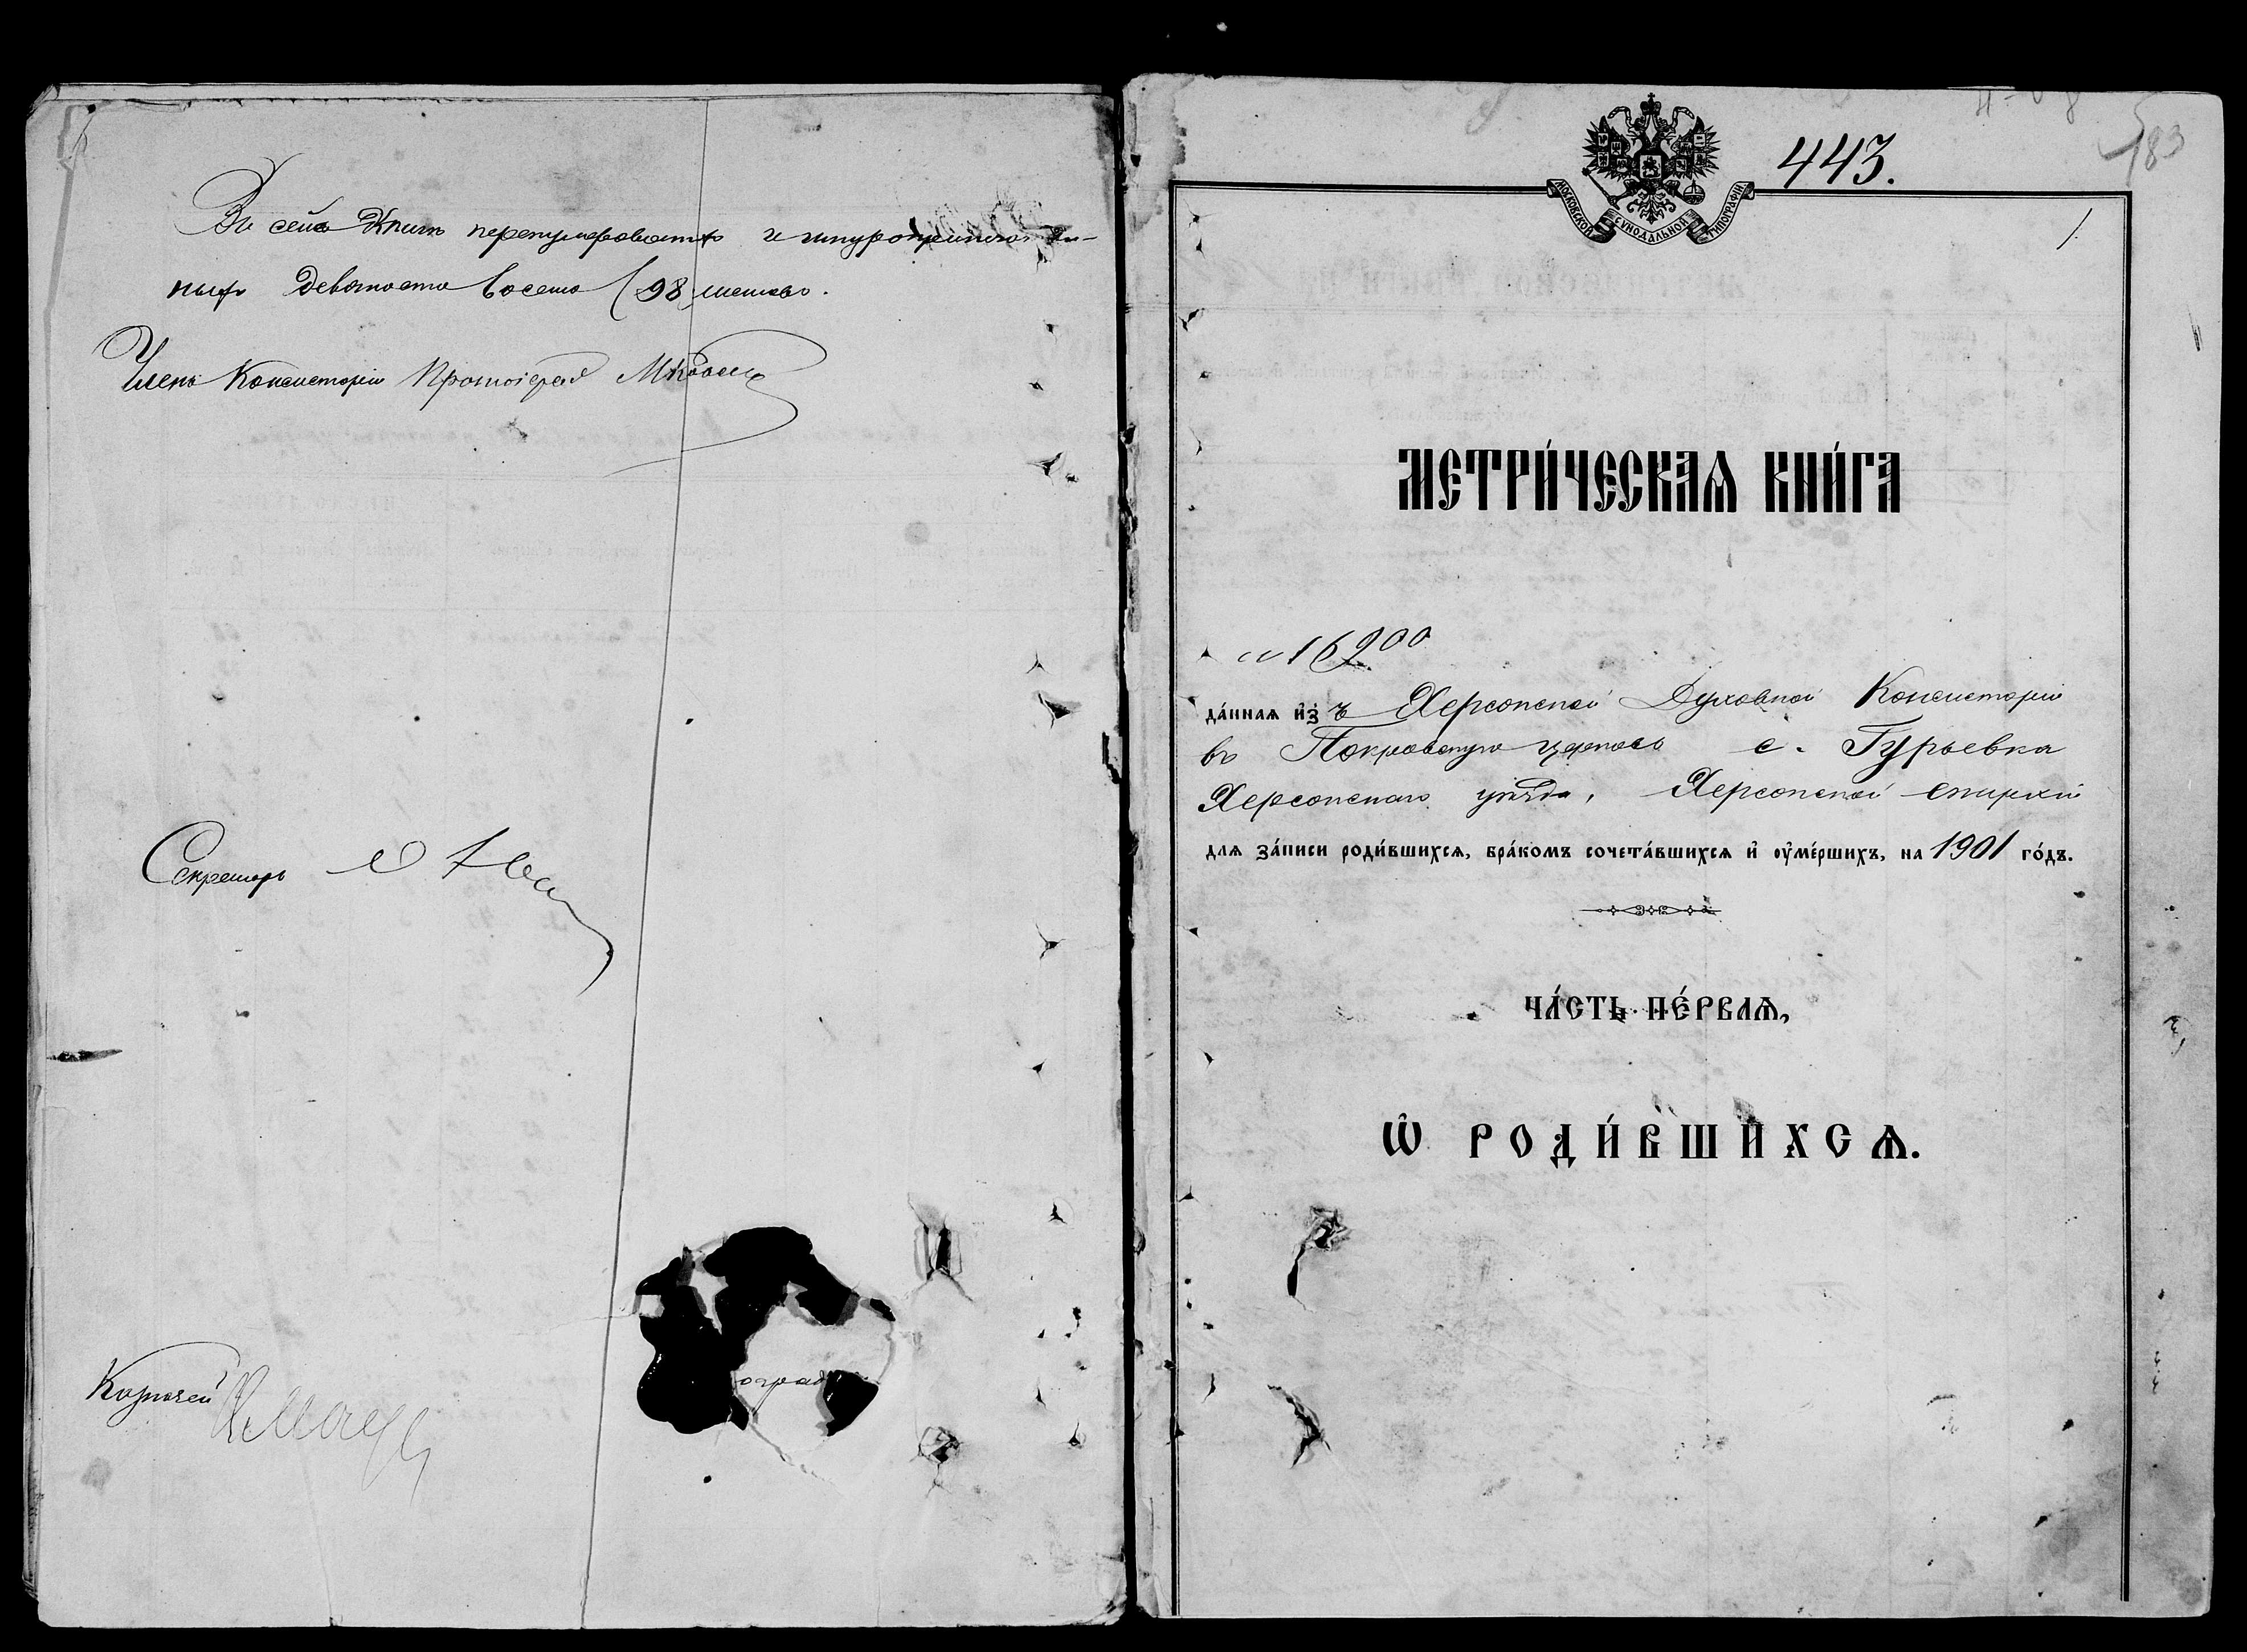 Въ сей Книгѣ перенумерованныхъ и
ныхъ девяносто восемь (98) листовъ.
Членъ Консисторіи Протоіерей
Секретарь
Казначей
443.
183
МОСКОВСКОЙ СѴНОДАЛЬНОЙ ТИПОГРАФІИ
1.
МЕТРИ́ЧЕСКАѦ КНИ́ГА
№ 16900
да́ннаѧ и҆зъ Херсонской Духовной Консисторіи
въ Покровскую церковь с. Гурьевка
Херсонскаго уѣзда, Херсонской епархіи
для за́писи роди́вшихсѧ, бра́комъ сочета́вшихсѧ и҆ оу҆ме́ршихъ, на 1901 го́дъ.
ЧА́СТЬ ПЕ́РВАѦ,
Ѡ҆ РОДИ́ВШИХСѦ.